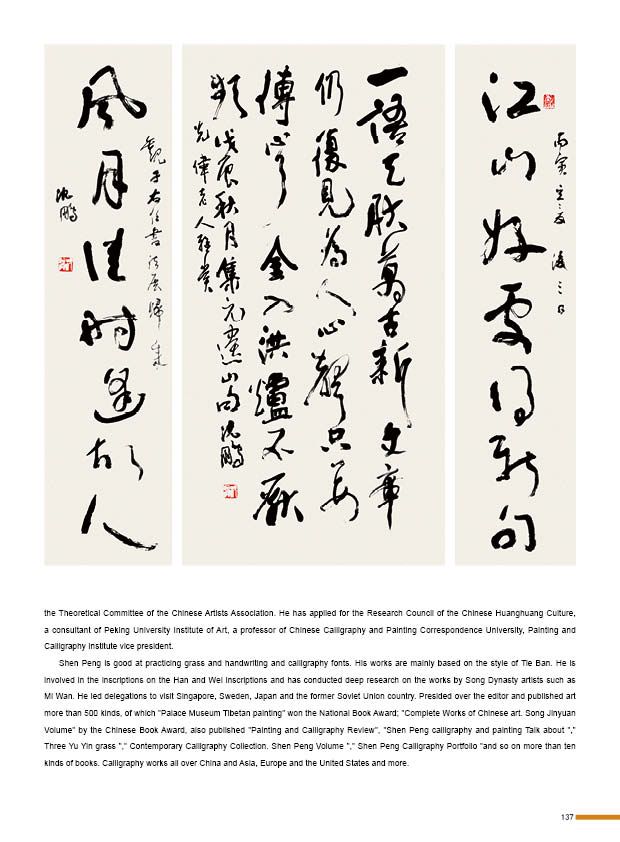 江山好處得新句
丙寅立夏後三日
一語天然萬古新文章
仍復見為人心聲只要
傳心了金入洪爐不厭
頻戊辰秋月集元遺山句沈鵬
偉老人雅賞
觀于右任書法展歸
風月佳時逢故人
沈鵬
the Theoretical Committee of the Chinese Artists Association. He has applied for the Research Council of the Chinese Huanghuang Culture,
a consultant of Peking University Institute of Art, a professor of Chinese Calligraphy and Painting Correspondence University, Painting and
Calligraphy Institute vice president.
Shen Peng is good at practicing grass and handwriting and calligraphy fonts. His works are mainly based on the style of Tie Ban. He is
involved in the inscriptions on the Han and Wei inscriptions and has conducted deep research on the works by Song Dynasty artists such as
Mi Wan. He led delegations to visit Singapore, Sweden, Japan and the former Soviet Union country. Presided over the editor and published art
more than 500 kinds, of which "Palace Museum Tibetan painting" won the National Book Award; "Complete Works of Chinese art. Song Jinyuan
Volume" by the Chinese Book Award, also published "Painting and Calligraphy Review", "Shen Peng calligraphy and painting Talk about ","
Three Yu Yin grass "," Contemporary Calligraphy Collection. Shen Peng Volume "," Shen Peng Calligraphy Portfolio "and so on more than ten
kinds of books. Calligraphy works all over China and Asia, Europe and the United States and more.
137